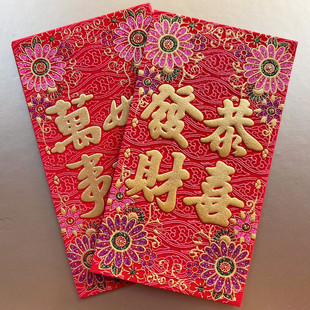 恭喜
發財
萬事